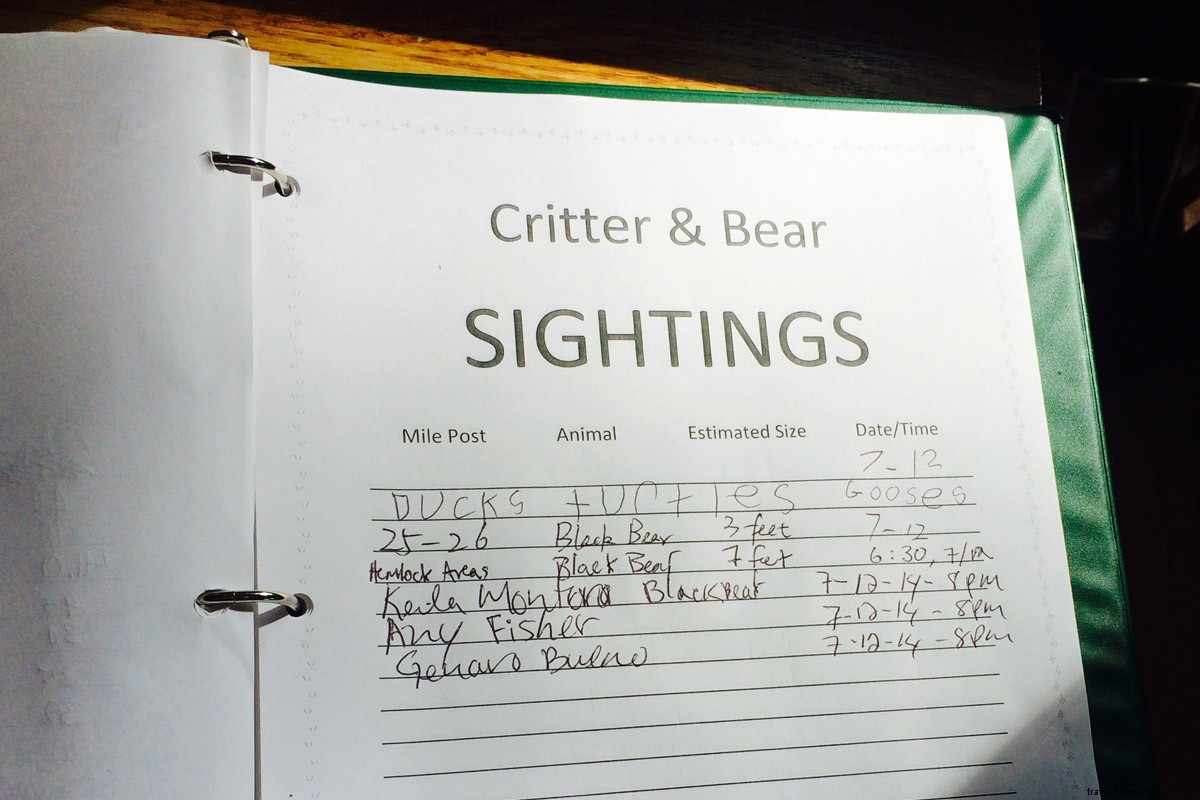 Critter & Bear
SIGHTINGS
Mile Post Animal Estimated Size Date/Time
7-12
DUCKS tUrtles Gooses
25-26 Black Bear 3 feet 7-12
Hemlock Areas Black Bear 7 feet 6:30, 7/12
Montoro Blackbear 7-12-14-8pm
Any Fisher 7-12-14 - 8pm
Genaro Bueno 7-12-14 - 8pm